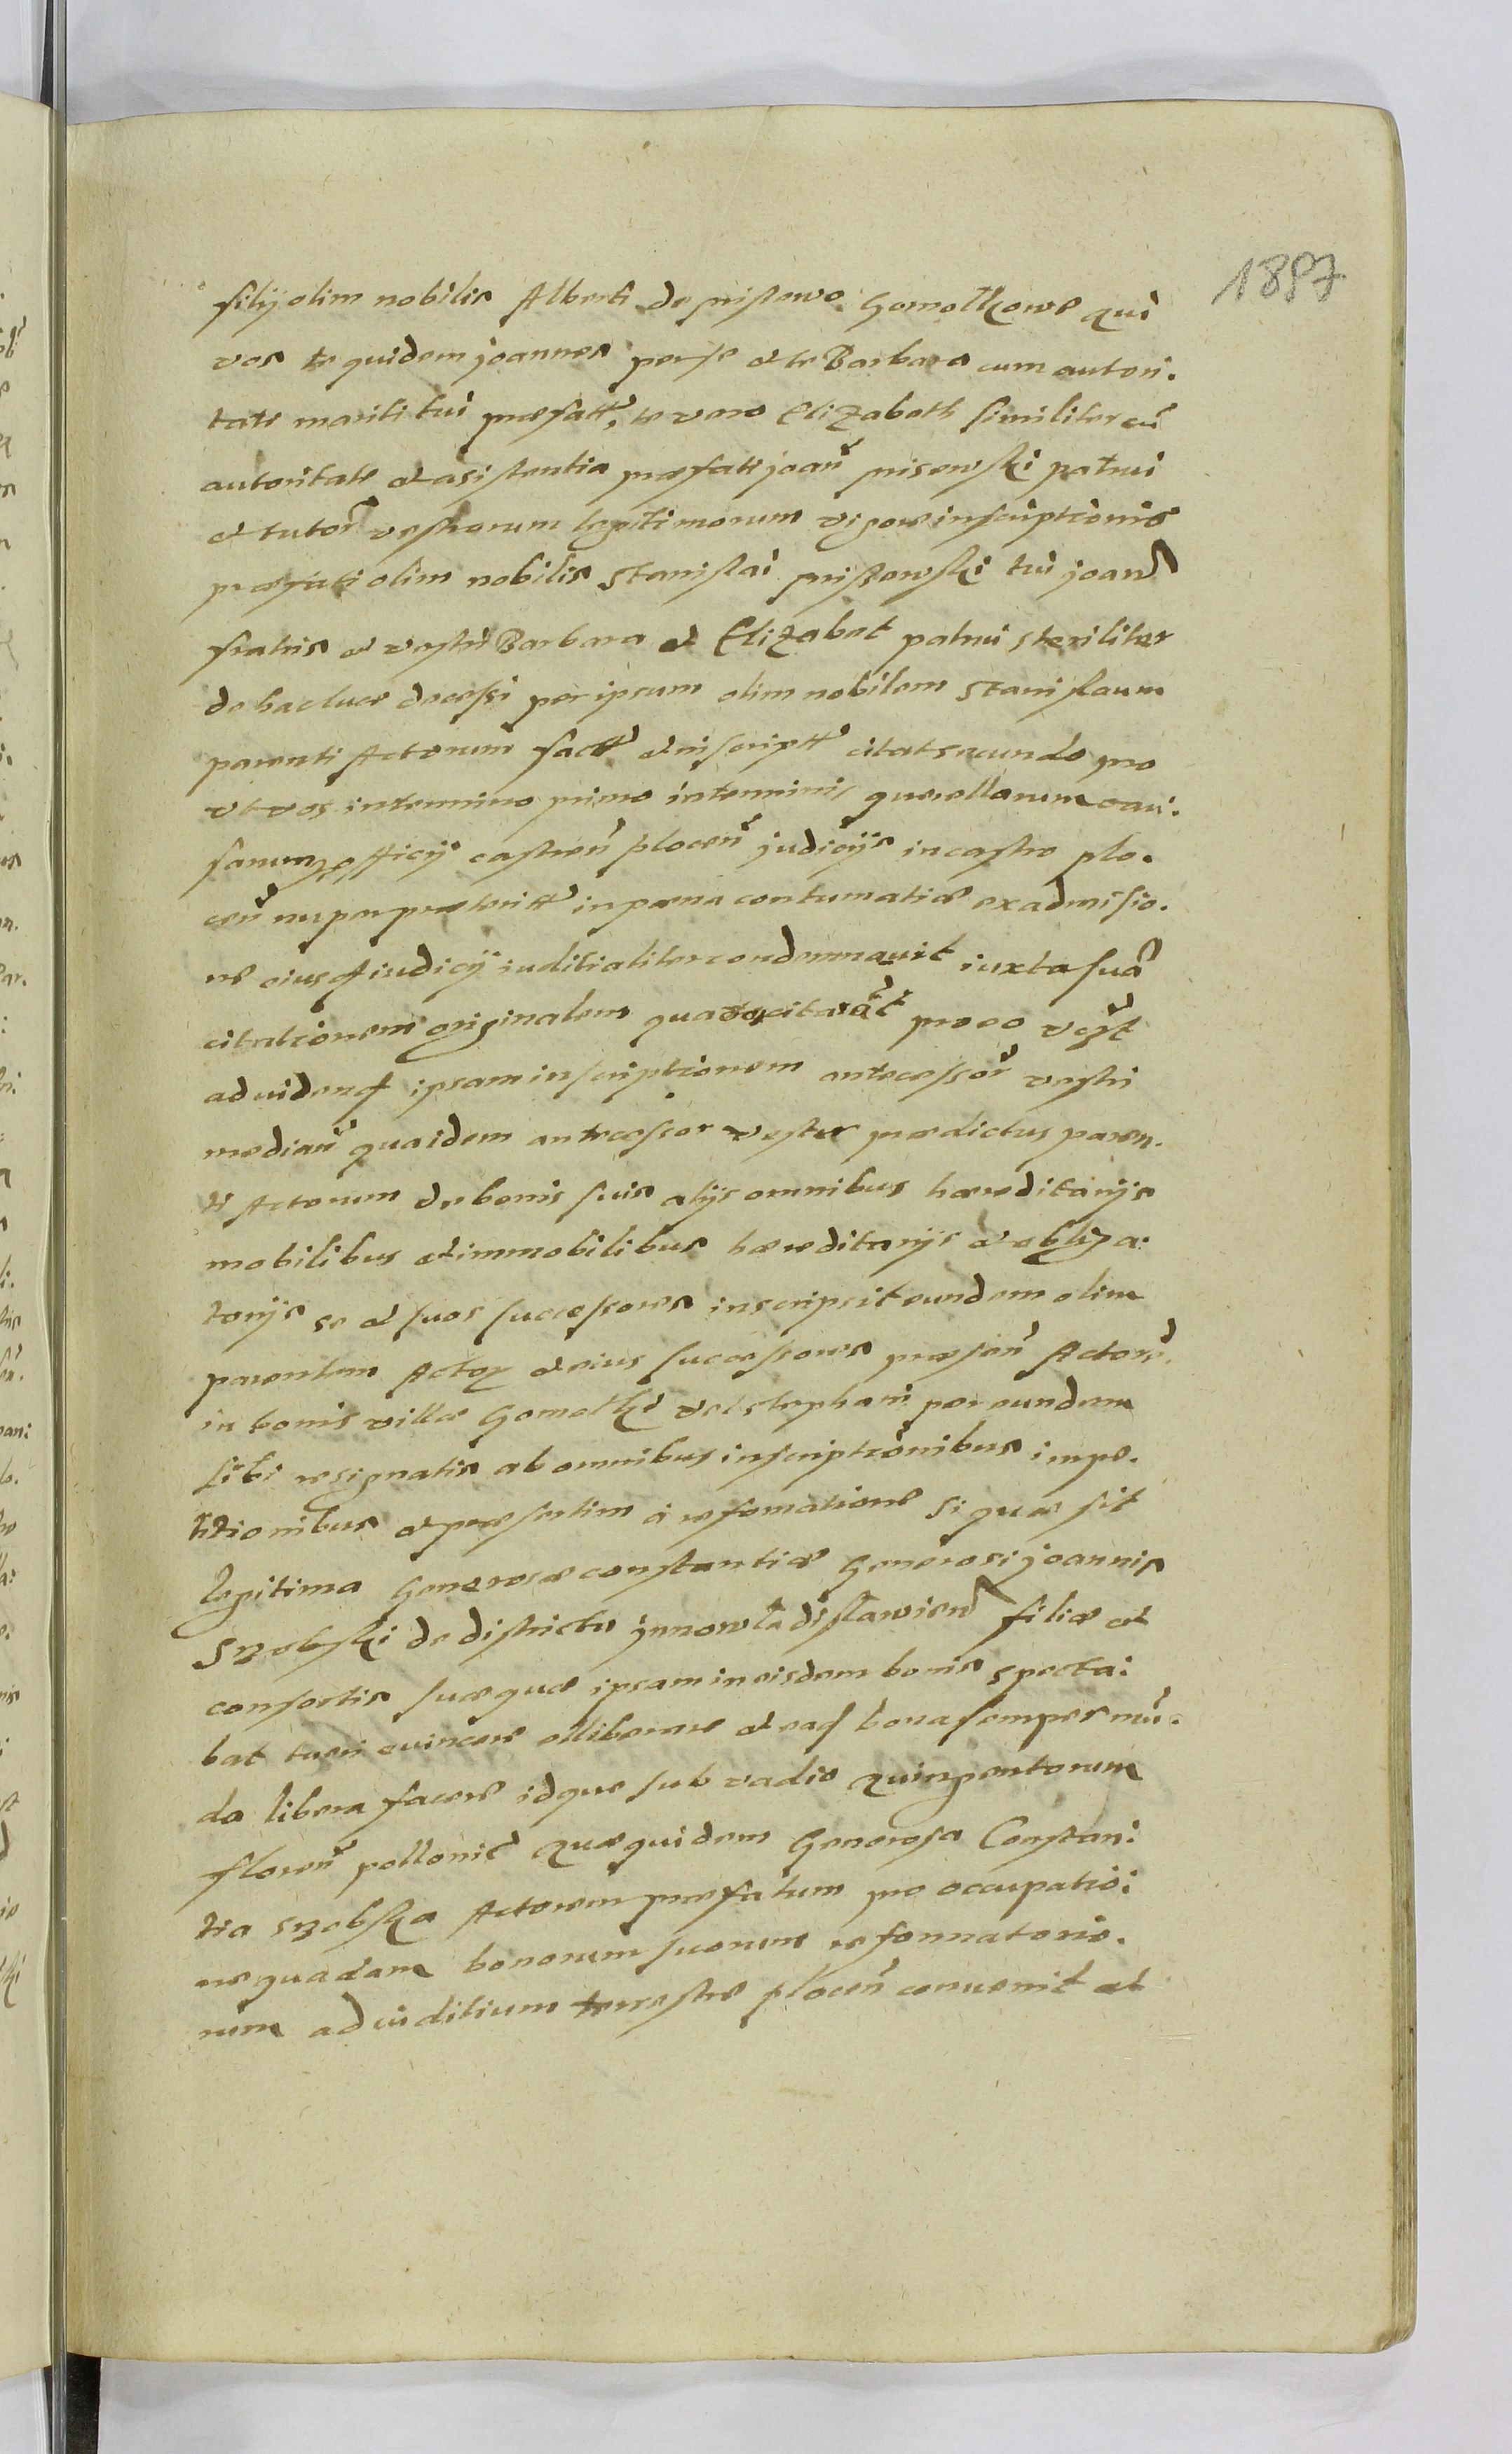 1897
filij olim nobilis Alberti de misewo Gomolkowe qui
vos te quidem joannes per se et te Barbara cum autori.
tate mariti tui præfatt, te vero Elizabeth similiter cu
autoritate et asistentia præfati joan misewski patrui
et tutor vestrorum legitimorum vigore inscriptionis
præfati olim nobilis Stanislai misewski tui joan
fratris et vestri Barbara et Elizabet patrui steriliter
de hac luce decessi per ipsum olim nobilem Stanislaum
parenti Actorum fact et inscript citat secundo pro
ut vos in termino primo in terminis querellarum cau.
sarum officij castren plocen judicijs in castro plo.
cen nuper præteritt in pæna contumatiæ ex admisio.
ne eiusd iudicij iuditialiter condemnavit iuxta suã
citationem originalem qua vos citarãt pro eo
ad uidend ipsam inscriptionem antecessor vestri
median qua idem antecessor vester prædictus paren.
ti Actorum de bonis suis alijs omnibus hæreditarijs
mobilibus et immobilibus hæreditarijs et obliga:
torijs se et suos successores inscripsit eundem olim
parentem Actor et eius successores præsen Actore
in bonis villæ Gomolki vel stephani per eundem
sibi resignatis ab omnibus inscriptionibus impe.
titionibus et præsertim à reformatione si quæ sit
legitima Generosæ constantiæ Generosi joannis
Srzebski de districtu jnnowladislawien filiæ et
consortis suæ quæ ipsam in eisdem bonis specta:
bat tueri euincere et liberare et ead bona semper mũ.
da libera facere idque sub vadio quingentorum
floren pollonic quæ quidem Generosa Constan:
tia srzebska Actorem præfatum pro occupatio:
ne quadam bonorum suorum reformatorio.
rum ad iuditium terrestre plocen conuenit et